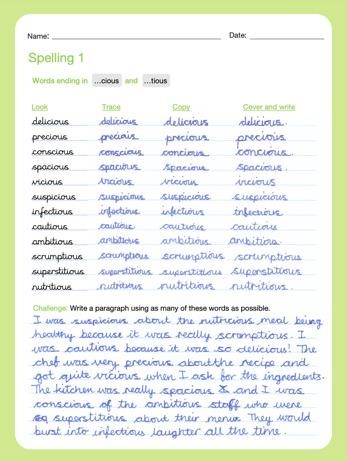 Name: Date:
Spelling 1
Words ending in ...cious and ...tious
Look Trace Copy Cover and write
delicious delicious delicious delicious.
precious precious precious precious
conscious conscious concious concious.
spacious spacious spacious spacious.
vicious vicious vicious vicious
suspicious suspicious suspicious suspicious
infectious infectious infectious infectious.
cautious cautious cautious cautious
ambitious ambitious ambitious ambitious.
scrumptious scrumptious scrumptious scrumptious
superstitious superstitious superstitious superstitious
nutritious nutritious nutritious nutritious.
Challenge: Write a paragraph using as many of these words as possible.
I was suspicious about the nutricious meal being
healthy because it was really scrumptious. I
was cautious because it was so delicious! The
chef was very precious about the recipe and
got quite vicious when I ask for the ingredients.
The kitchen was really spacious and I was
conscious of the ambitious staff who were
superstitious about their menu. They would
burst into infectious laughter all the time.